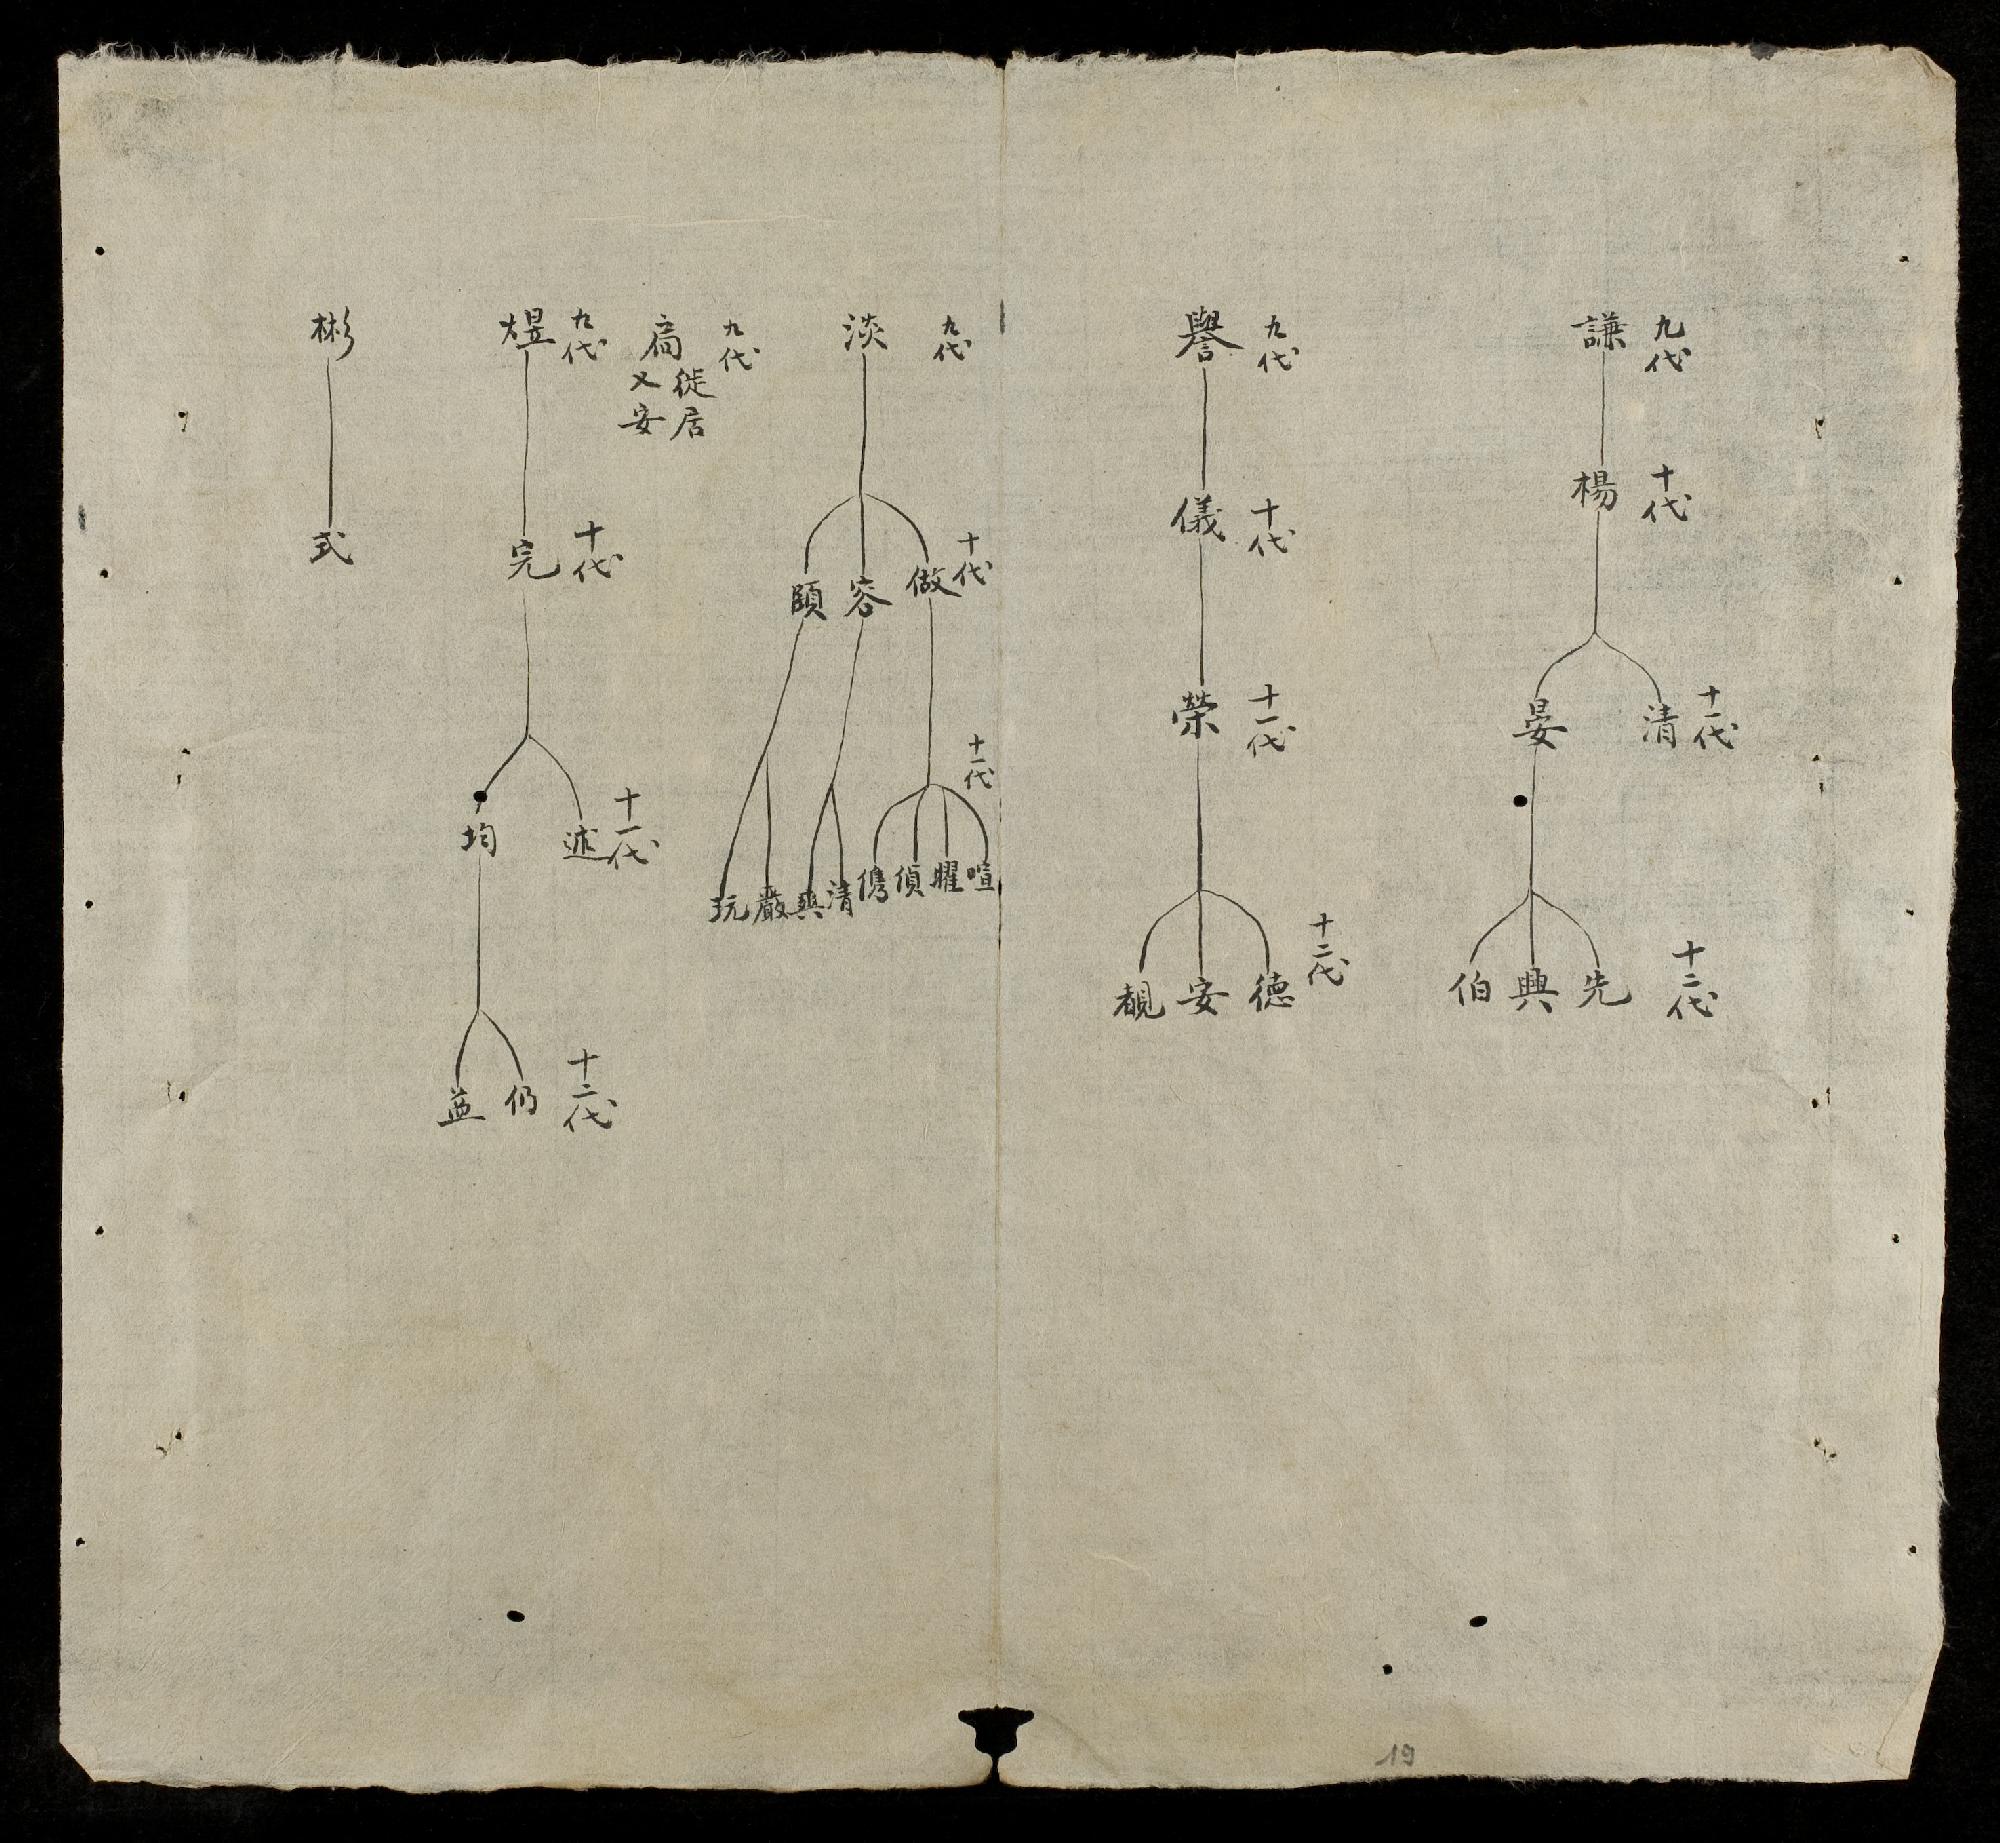 九代
謙
十代
楊
十一代
清 晏
十二代
先 興 伯
九代
譽
十代
儀
十一代
榮
十二代
德 安 覩
九代
淡
十代
做 容 頤
十一代
喧 曜 偵 儁 清 興 嚴 玩
九代
扄
徙居
乂安
九代
煜
十代
完
十一代
述 均
十二代
仍 益
彬
式
19